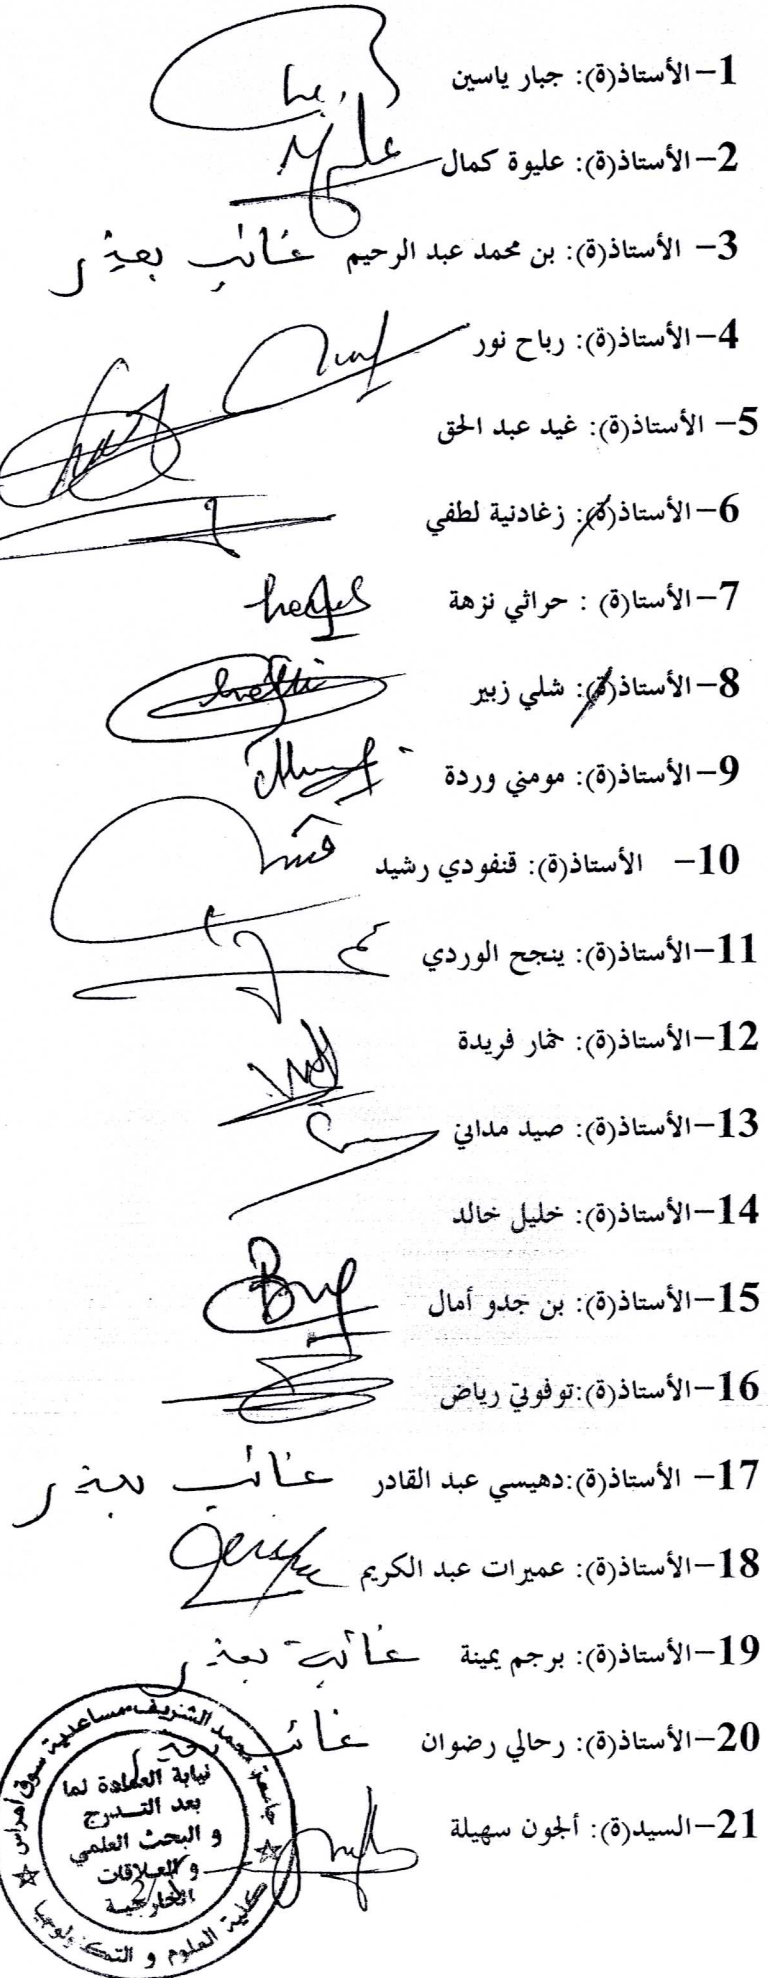 1-الأستاذ(ة): جبار ياسين
2-الأستاذ(ة): عليوة كمال
3- الأستاذ(ة): بن محمد عبد الرحيم غائب بعذر
4-الأستاذ(ة): رباح نور
5- الأستاذ(ة): غيد عبد الحق
6-الأستاذ(ة): زغادنية لطفي
7-الأستا(ة) : حراثي نزهة
8-الأستاذ(ة): شلي زبير
9-الأستاذ(ة): مومني وردة
10- الأستاذ(ة): قنفودي رشيد
11-الأستاذ(ة): ينجح الوردي
12-الأستاذ(ة): خمار فريدة
13-الأستاذ(ة): صيد مداني
14-الأستاذ(ة): خليل خالد
15-الأستاذ(ة): بن جدو أمال
16-الأستاذ(ة):توفوتي رياض
17- الأستاذ(ة):دهيسي عبد القادر غائب بعذر
18-الأستاذ(ة): عميرات عبد الكريم
19-الأستاذ(ة): برجم يمينة غائبة بعذر
20-الأستاذ(ة): رحالي رضوان غائب بعذر
21-السيد(ة): ألجون سهيلة
جامعة محمد الشريف مساعدية سوق أهراس
نيابة العمادة لما
بعد التدرج
و البحث العلمي
و العلاقات
الخارجية
كلية العلوم و التكنولوجيا